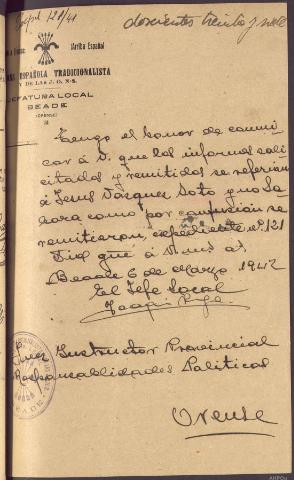 Expte 128/41
doscientos treinta y siete
¡Arriba España!
ESPAÑOLA TRADICIONALISTA
Y DE LAS J. O. N-S.
JEFATURA LOCAL
BEADE
(ORENSE)
Tengo el honor de comuni
car á V. que los informes soli
citados y remitidos se referian
á Jesus Vazquez Soto y no Sa
bara como por confusión se
remitieron, expediente nº 121
Dios
Beade 6 de Marzo 1942
El Jefe Local
Juez Instructor Provincial
Responsabilidades Politicas
Orense
BEADE
AHPOu